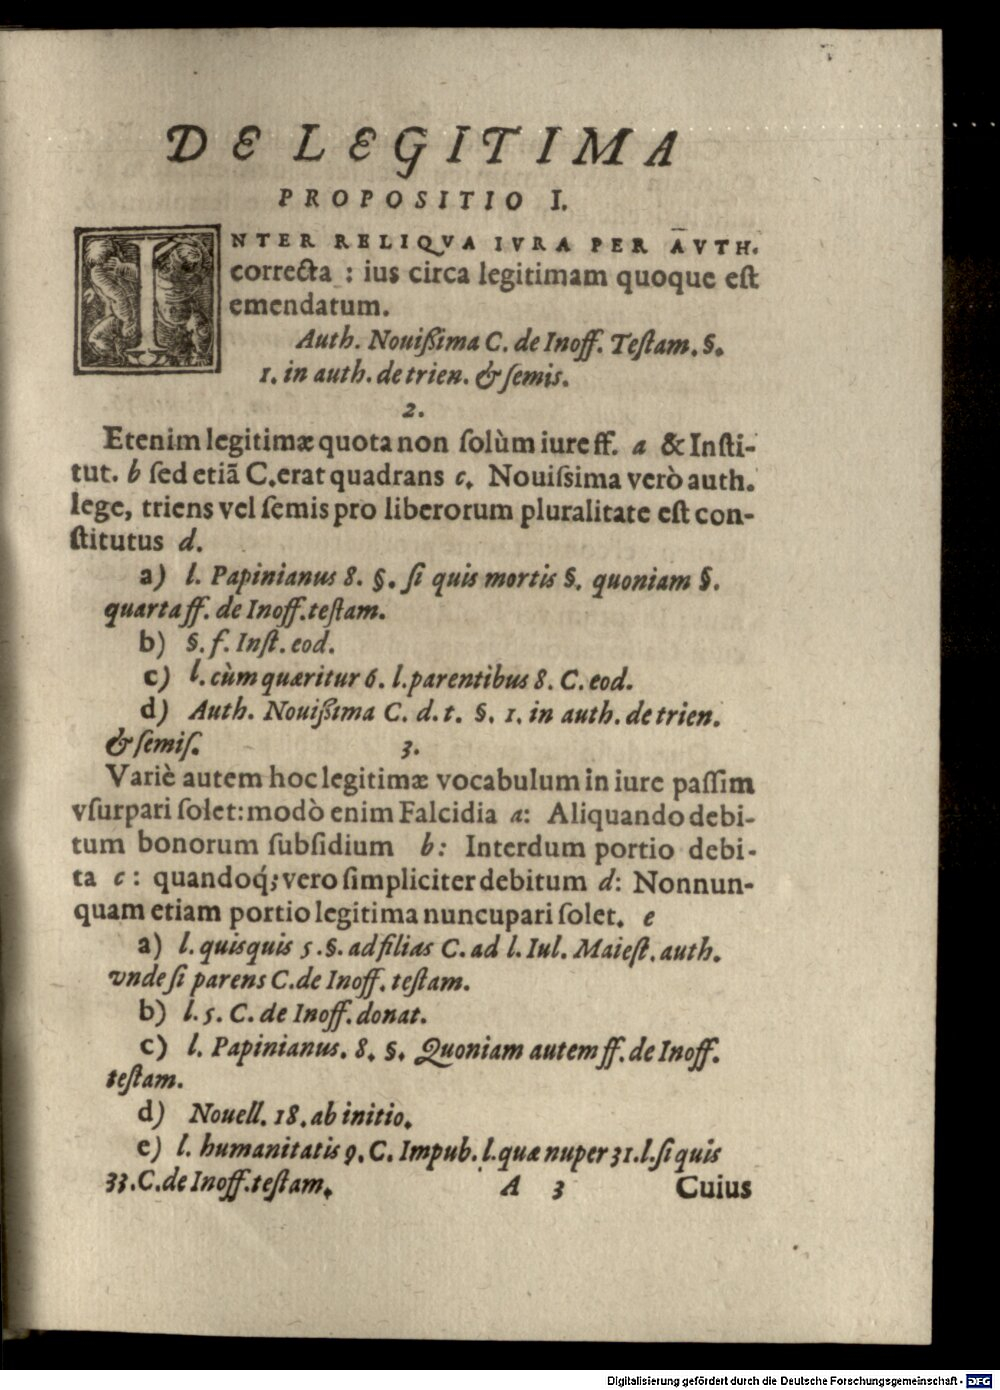 DE LEGITIMA
PROPOSITIO I.
INTER RELIQVA IVRA PER AV̄TH.
correcta : ius circa legitimam quoque eſt
emendatum.
Auth. Nouißima C. de Inoff. Teſtam. §.
1. in auth. de trien. & ſemis.
2.
Etenim legitimæ quota non ſolùm iure ff. a & Inſti-
tut. b ſed etiā C. erat quadrans c. Nouiſsima verò auth.
lege, triens vel ſemis pro liberorum pluralitate eſt con-
ſtitutus d.
a) l. Papinianus 8. §. ſi quis mortis §. quoniam §.
quarta ff. de Inoff. teſtam.
b) §. f. Inſt. eod.
c) l. cùm quæritur 6. l. parentibus 8. C. eod.
d) Auth. Nouißima C. d. t. §. 1. in auth. de trien.
& ſemiſ.
3.
Variè autem hoc legitimæ vocabulum in iure paſſim
vſurpari ſolet: modò enim Falcidia a: Aliquando debi-
tum bonorum ſubſidium b: Interdum portio debi-
ta c : quandoq́; vero ſimpliciter debitum d: Nonnun-
quam etiam portio legitima nuncupari ſolet. e
a) l. quisquis 5. §. ad filias C. ad l. Iul. Maieſt. auth.
vnde ſi parens C. de Inoff. teſtam.
b) l. 5. C. de Inoff. donat.
c) l. Papinianus. 8. §. Quoniam autem ff. de Inoff.
teſtam.
d) Nouell. 18. ab initio.
e) l. humanitatis 9. C. Impub. l. quæ nuper 31. l. ſi quis
33. C. de Inoff. teſtam.
A 3 Cuius
Digitalisierung gefördert durch die Deutsche Forschungsgemeinschaft - DFG